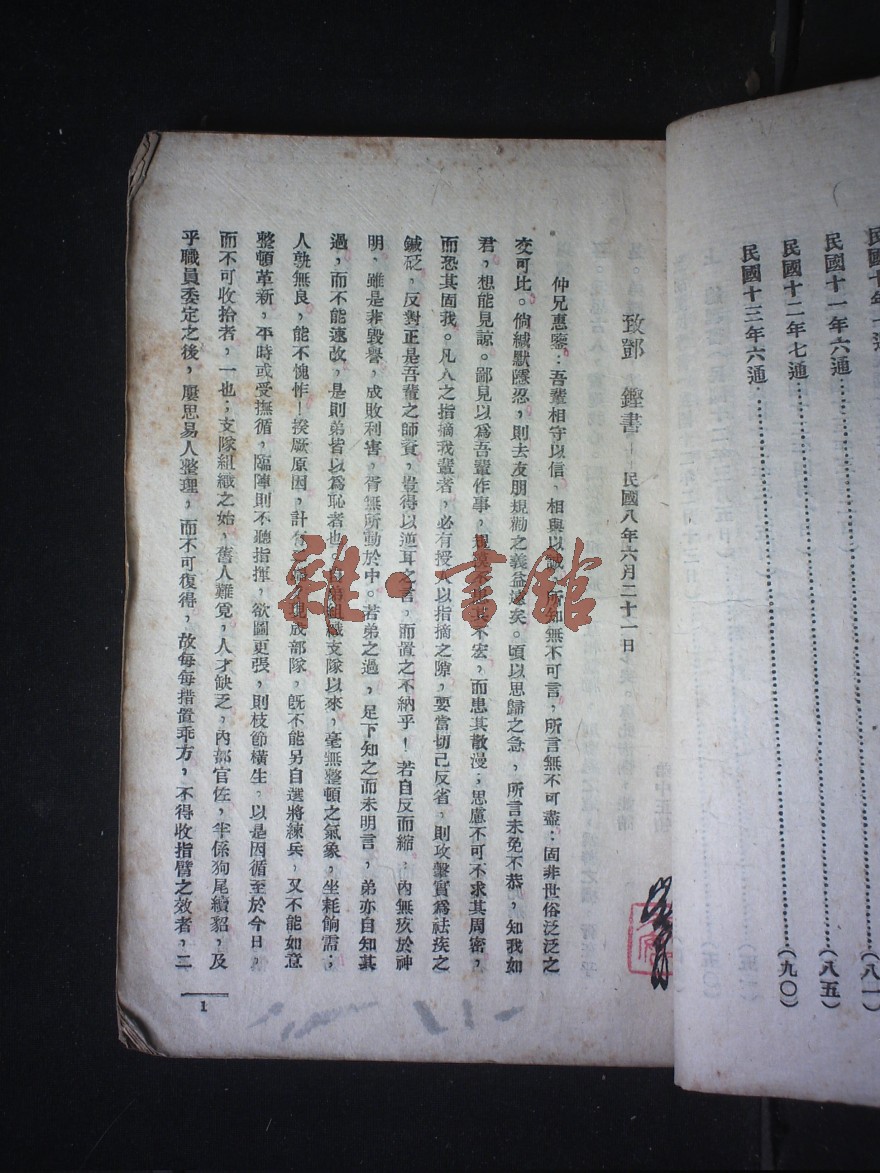 民國十一年六通……（八一）
民國十二年七通……（八五）
民國十三年六通……（九〇）
致鄧　鏗書　民國八年六月二十一日
仲兄惠鑒：吾輩相守以信，相與以誠，所知無不可言，所言無不可盡：固非世俗泛泛之
交可比。倘緘默隱忍，則去友朋規勸之義益遠矣。頃以思歸之急，所言未免不恭，知我如
君，想能見諒。鄙見以為吾輩作事，規模不患其不宏，而患其散漫；思慮不可不求其周密，
而恐其固我。凡人之指摘我輩者，必有授人以指摘之隙，要當切己反省，則攻擊實為祛疾之
鍼砭，反對正是吾輩之師資，豈得以逆耳之言，而置之不納乎！若自反而縮，內無疚於神
明，雖是非毀譽，成敗利害，胥無所動於中。若弟之過，足下知之而未明言，弟亦自知其
過，而不能速改，是則弟皆以為恥者也。自弟組織支隊以來，毫無整頓之氣象，坐耗餉需；
人孰無良，能不愧怍！揆厥原因，計有二端：現成部隊，旣不能另自選將練兵，又不能如意
整頓革新，平時或受撫循，臨陣則不聽指揮，欲圖更張，則枝節橫生，以是因循至於今日，
而不可收拾者，一也；支隊組織之始，舊人難覓，人才缺乏，內部官佐，半係狗尾續貂，及
乎職員委定之後，屢思易人整理，而不可復得，故每每措置乖方，不得收指臂之效者，二
1
雜·書館